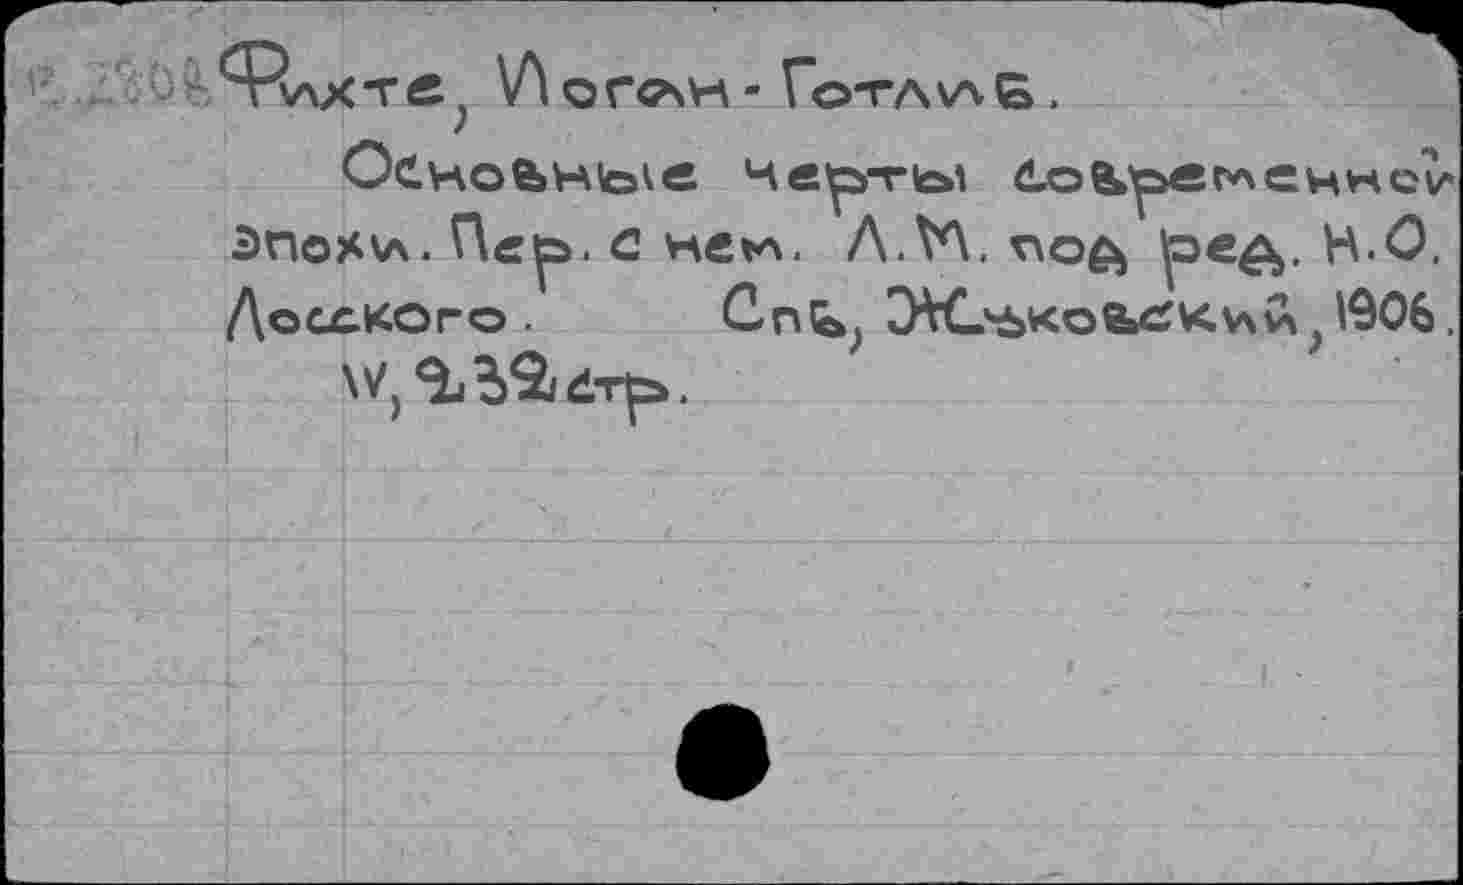 Фихте, Иоган-Готлиб.
Основные черты современной
эпохи. Пер. с нем. Л.М. под ред. Н.О.
Лосского. Спб, Жуковский, 1906.
IV, 232 стр.